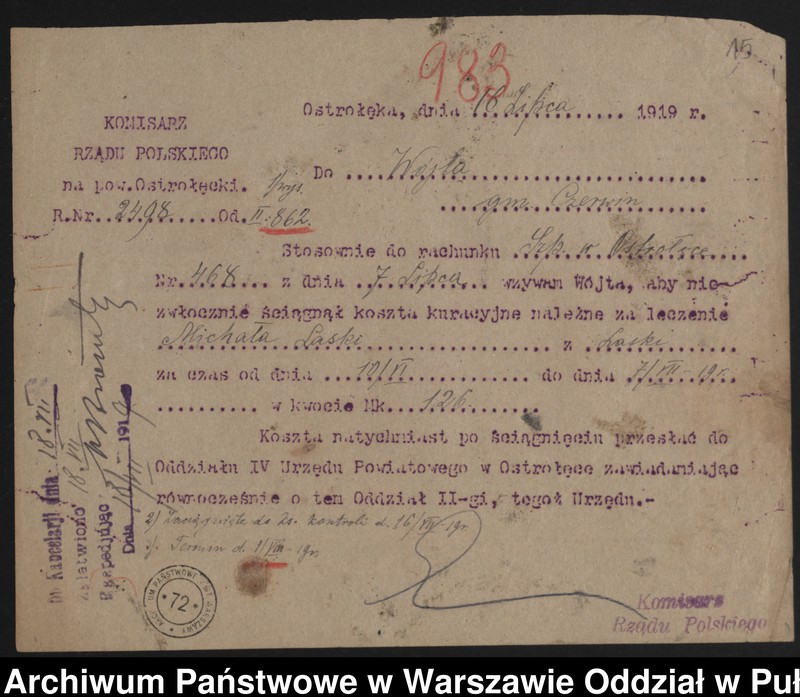 983
15
Ostrołęka, dnia 18 Lipca 1919 r.
KOMISARZ
RZĄDU POLSKIEGO
na pow. Ostrołęcki.
R.Nr. 2498 Od. II. 862.
Do Wójta
gm. Czerwin
Stosownie do rachunku Szp. w Ostrołęce
Nr. 468 z dnia 7 Lipca wzywam Wójta, aby nie-
zwłocznie ściągnął koszta kuracyjne należne za leczenie
Michała Laski z Laski
za czas od dnia 12/VI do dnia 7/VII-19r.
w kwocie Mk. 126
Koszta natychmiast po ściągnięciu przesłać do
Oddziału IV Urzędu Powiatowego w Ostrołęce zawiadamiając
równocześnie o tem Oddział II-gi, tegoż Urzędu.-
2) Zaciągnięte do ks. kontroli d. 16/VII-19r
3) Termin d. 1/VIII-19r
Do Kancelarji dnia 18.VII
Załatwiono 18.VII
Ekspedjując
Dnia 18/VII 1919
ARCHIWUM PAŃSTWOWE M. ST. WARSZAWY
* 72 *
Komisarz
Rządu Polskiego
Archiwum Państwowe w Warszawie Oddział w Puł